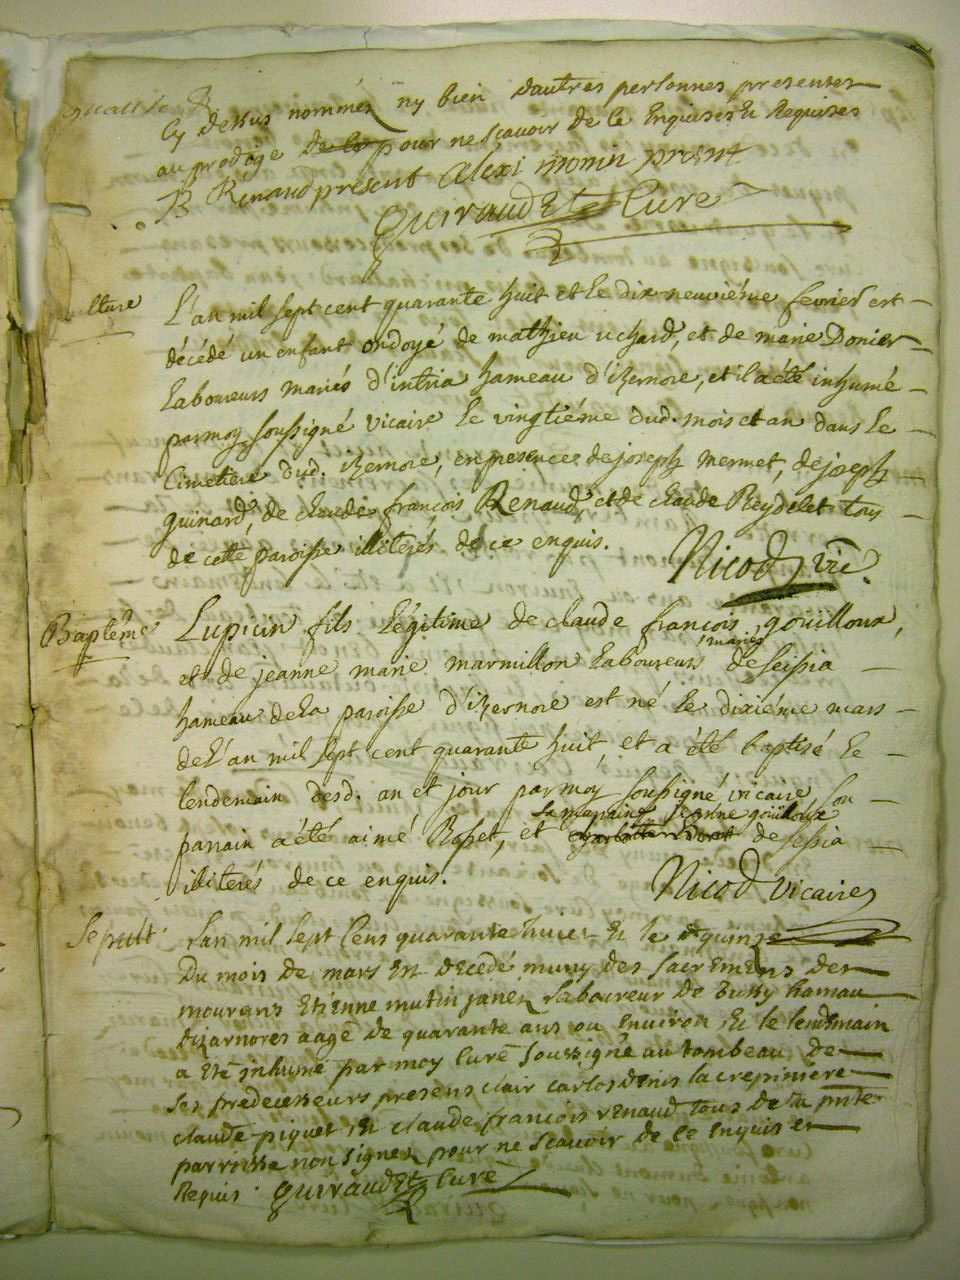 cy dessus nommés ny bien dautres personnes presentes
au prodage pour ne scavoir de ce Enquises Et Requises
B Renaud present alexi monin present
Quiraudet Curé
L'an mil sept cent quarante huit et le dix neuviéme fevrier est
décédé un enfant ondoyé de mathieu uchard, et de marie Donier
Laboureurs mariés d'intria hameau d'izernore, et il a été inhumé
par moy soussigné vicaire le vingtiéme dud. mois et an dans le
Cimetiere dud. izernore, en presence de joseph mermet, de joseph
guinard, de claude françois Renaud, et de claude Reydelet tous
de cette paroisse illiterés de ce enquis. Nicod vic̃e.
Baptême
Lupicin fils légitime de claude françois gouilloux,
et de jeanne marie marmillon Laboureurs mariés de seissia
hameau de la paroisse d'izernore est né le dixiéme mars
de l'an mil sept cent quarante huit, et a été baptisé le
lendemain desd. an et jour par moy soussigné vicaire, son
parrain a été aimé Roset, et sa marraine jeanne gouilloux de sessia
illiterés de ce enquis. Nicod vicaire
Sepult.
Lan mil sept Cens quarante huict Et le quinze
Du mois de mars Est decedé muny des sacremens des
mourans Etienne mutin janet Laboureur de Bussy hamau
dizarnores aagé de quarante ans ou Environ Et le lendemain
a Eté inhumé par moy Curé soussigné au tombeau de
ses predecesseurs presens clair carlos denis la crepiniere
claude piquet Et claude francois renaud tous de la pnte
parroisse non signez pour ne scavoir de ce Enquis et
Requis. Quiraudet Curé